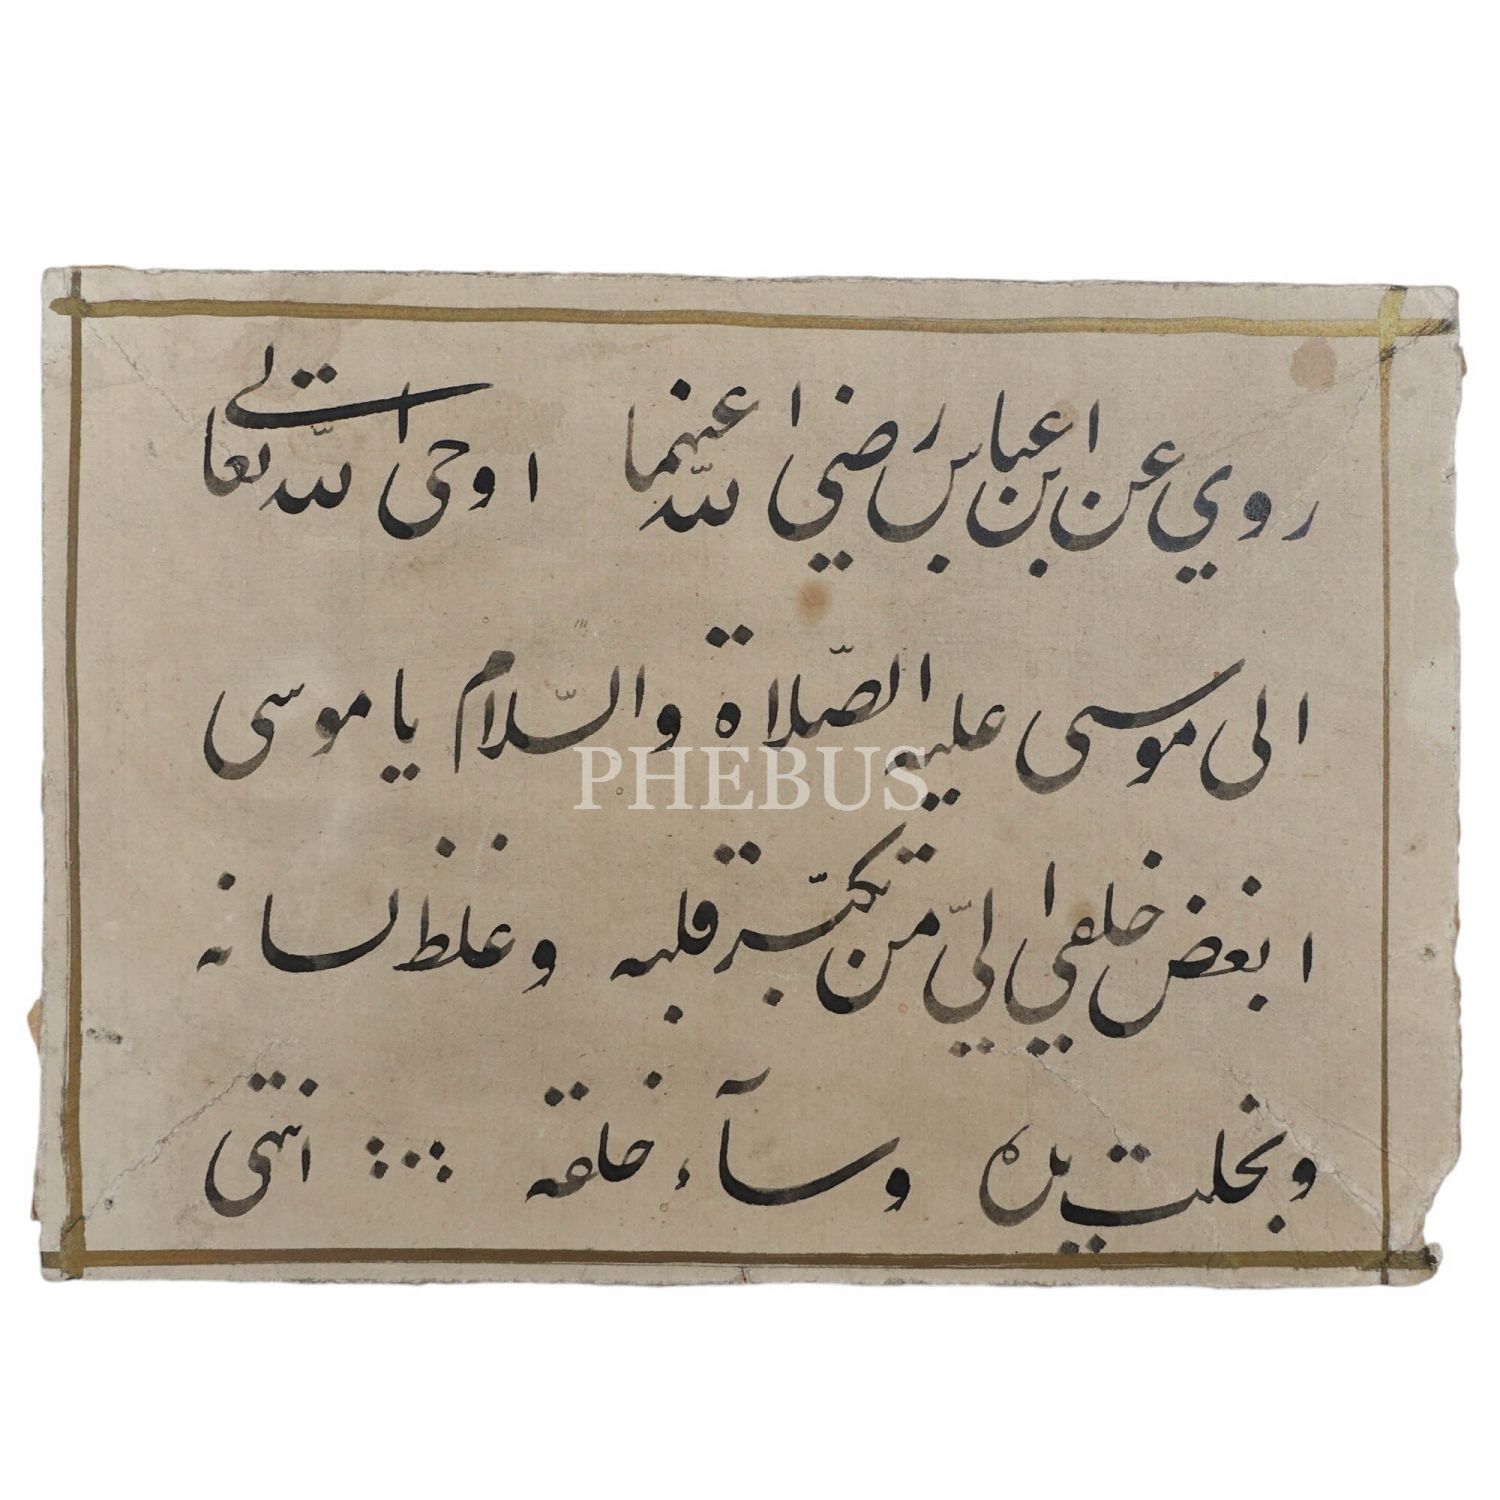 روي عن ابن عباس رضي الله عنهما اوحى الله تعالى
الى موسى عليه الصّلاة والسّلام يا موسى
PHEBUS
ابغض خلقي اليّ من تكبّر قلبه وغلظ لسانه
وبخلت يده وسآء خلقه انتهى